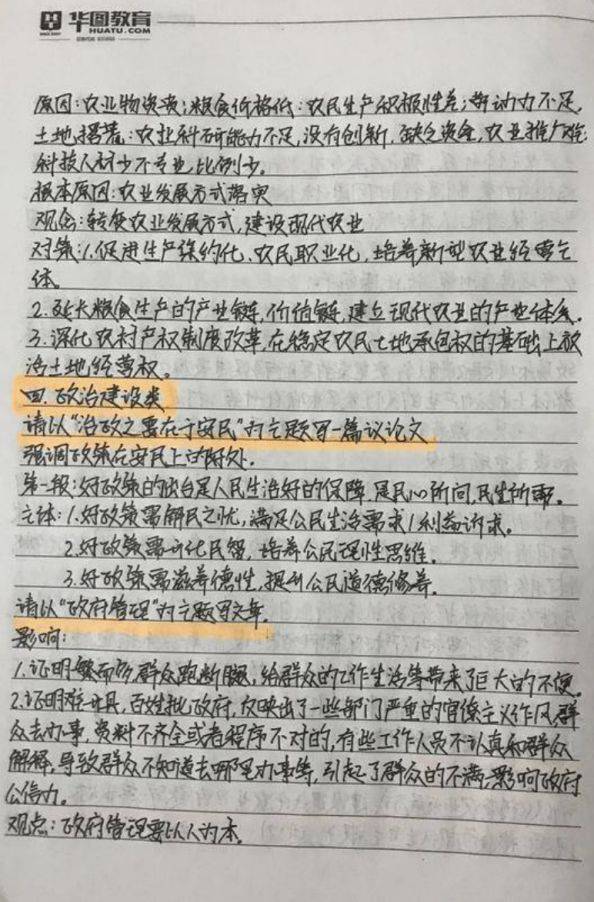 华图教育
HUATU.COM
原因:农业物资贵;粮食价格低:农民生产积极性差;劳动力不足,
土地撂荒:农业科研能力不足,没有创新,缺乏资金,农业推广难:
科技人才少不专业,比例少。
根本原因:农业发展方式落实
观念:转变农业发展方式,建设现代农业
对策:1.促进生产集约化、农民职业化,培养新型农业经营主
体。
2.延长粮食生产的产业链,价值链,建立现代农业的产业体系.
3.深化农村产权制度改革,在稳定农民土地承包权的基础上放
活土地经营权。
四.政治建设类
请以“治政之要在于安民”为主题写一篇议论文
强调政策在安民上的好处.
第一段:好政策的出台是人民生活好的保障,是民心所向,民生所需。
主体:1.好政策需解民之忧,满足公民生活需求/利益诉求。
2.好政策需开化民智,培养公民理性思维.
3.好政策需滋养德性,提升公民道德修养。
请以“政府管理”为主题写文章.
影响:
1.证明繁而多,群众跑断腿,给群众的工作生活等带来了巨大的不便。
2.证明难开具,百姓批政府,反映出了一些部门严重的官僚主义作风,群
众去办事,资料不齐全或者程序不对的,有些工作人员不认真和群众
解释,导致群众不知道去哪里办事等,引起了群众的不满,影响政府
公信力。
观点:政府管理要以人为本.